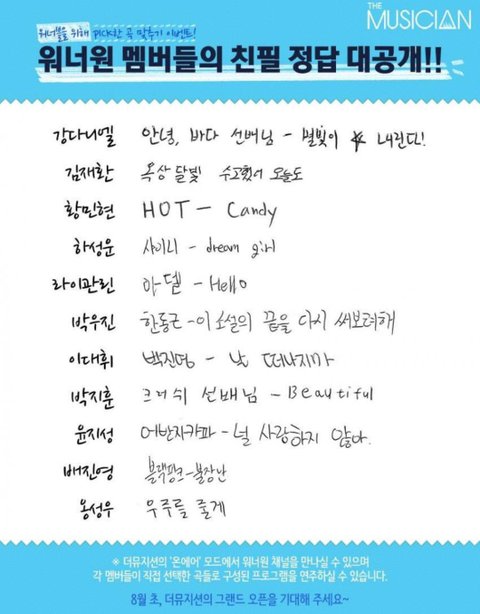 THE MUSICIAN
워너블을 위해 피나한 곡 맞추기 이벤트!
워너원 멤버들의 친필 정답 대공개!!
강다니엘 안녕, 바다 선배님 - 별빛이 내린다!
김재환 옥상달빛 수고했어 오늘도
황민현 HOT - Candy
하성운 샤이니 - dream girl
라이관린 아델 - Hello
박우진 한동근 - 이 소설의 끝을 다시 써보려해
이대휘 백진영 - 난 떠나지마
박지훈 크러쉬 선배님 - Beautiful
윤지성 어반자카파 - 널 사랑하지 않아.
배진영 블랙핑크 - 불장난
옹성우 우주를 줄게
※ 더뮤지션의 '온에어' 모드에서 워너원 채널을 만나실 수 있으며
각 멤버들이 직접 선택한 곡들로 구성된 프로그램을 연주하실 수 있습니다.
8월 초, 더뮤지션의 그랜드 오픈을 기대해 주세요~